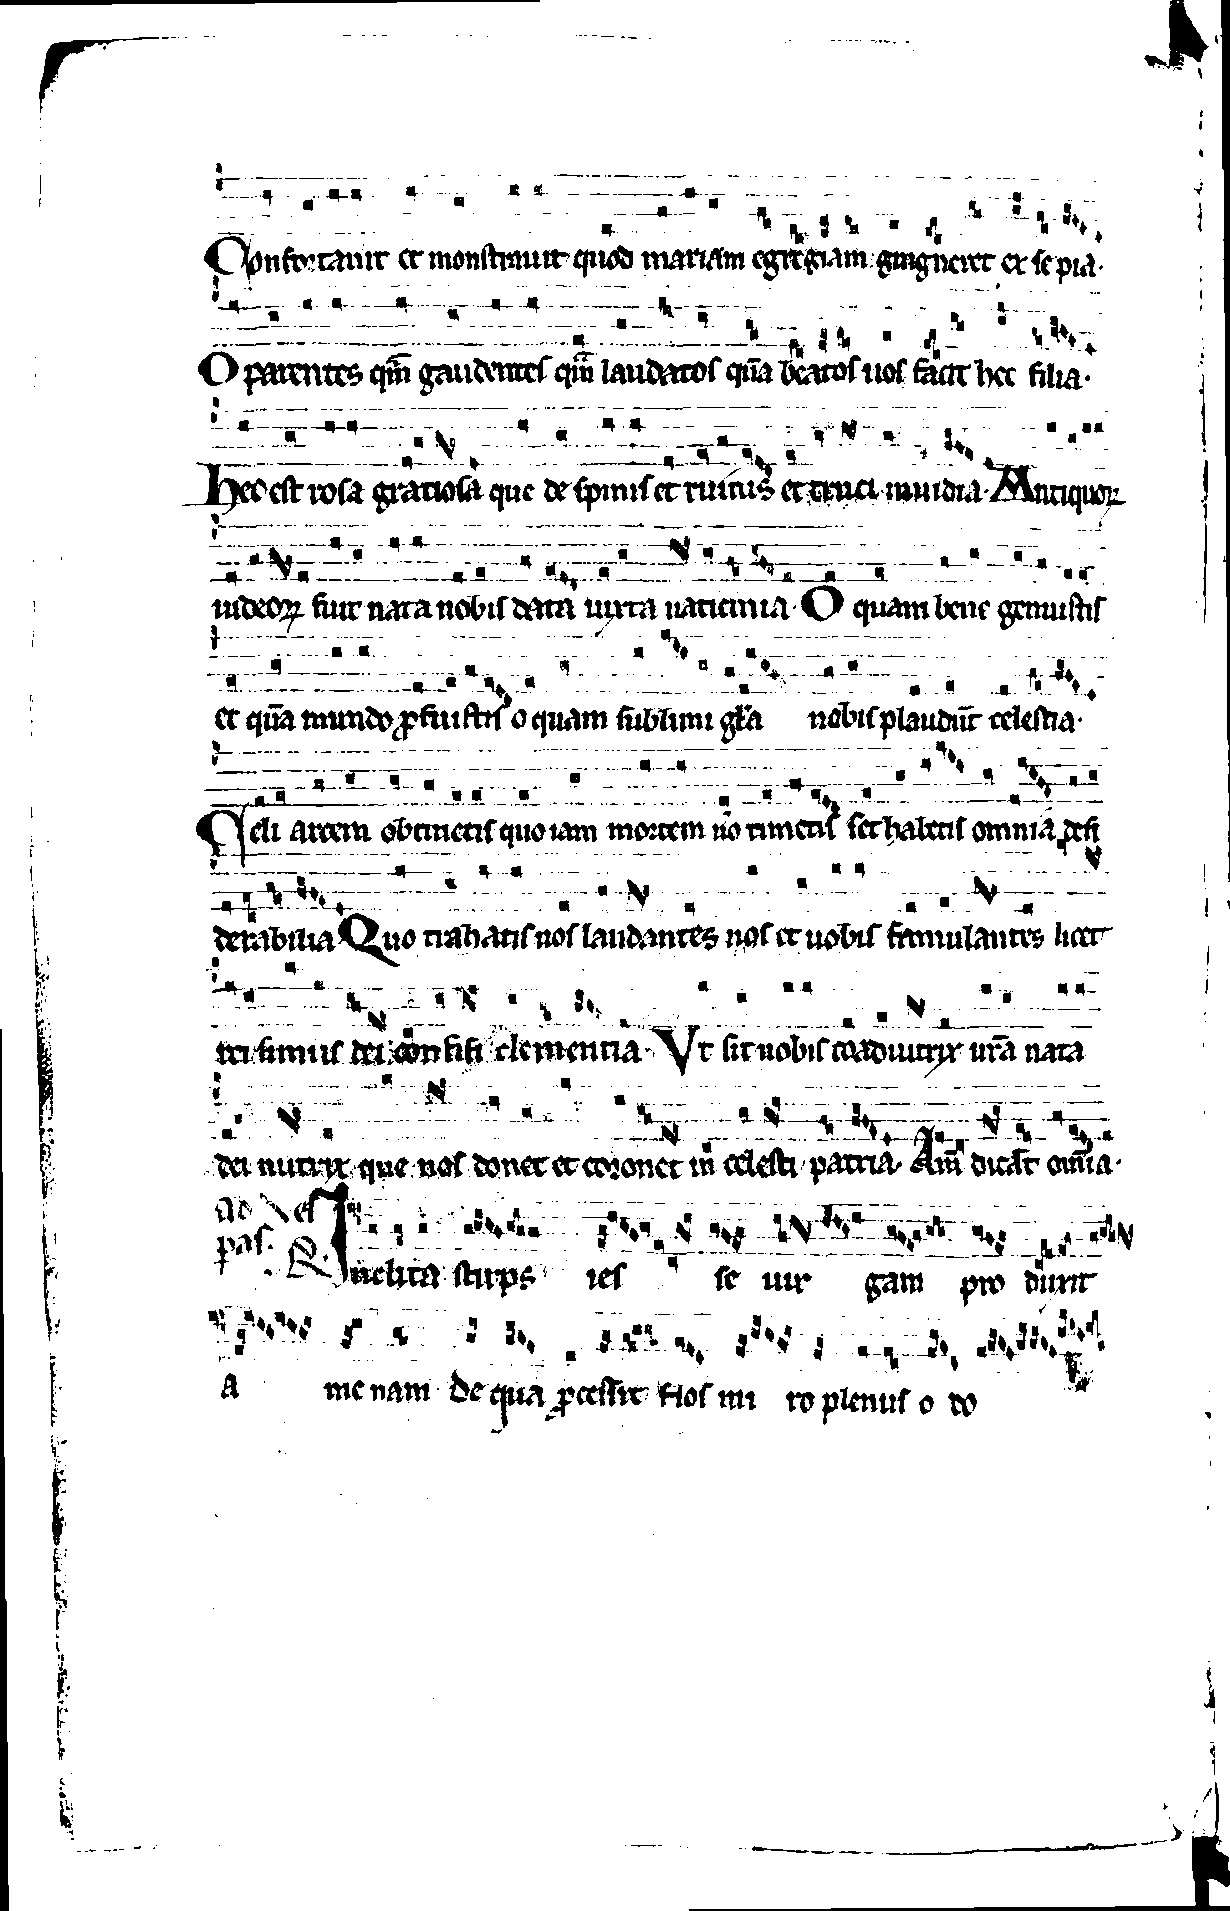 Confortauit et monstrauit quod mariam egregiam gingneret ex se pia·
O parentes qm̄ gaudentes qm̄ laudatos qūa beatos uos facit hec filia·
Hec est rosa gratiosa que de spinis et ruinis et truci inuidia· Antiquoꝝ
iudeoꝝ fuit nata nobis data iuxta uaticinia· O quam bene genuistis
et qūa mundo ꝓfuistis o quam sublimi gl̄a nobis plaudūt celestia·
Celi arcem obtinetis quo iam mortem nō timetis set habetis omnia desi
derabilia Quo trahatis nos laudantes nos et uobis famulantes licet
rei simus dei confisi clementia· Vt sit nobis coadiutrix ur̄a nata
dei nutrix que nos donet et coronet in celesti patria· Am̄ dicāt om̄ia·
ad ves
pas. R. Inclita stirps ies se uir gam pro duxit
a me nam de qua ꝓcessit flos mi ro plenus o do